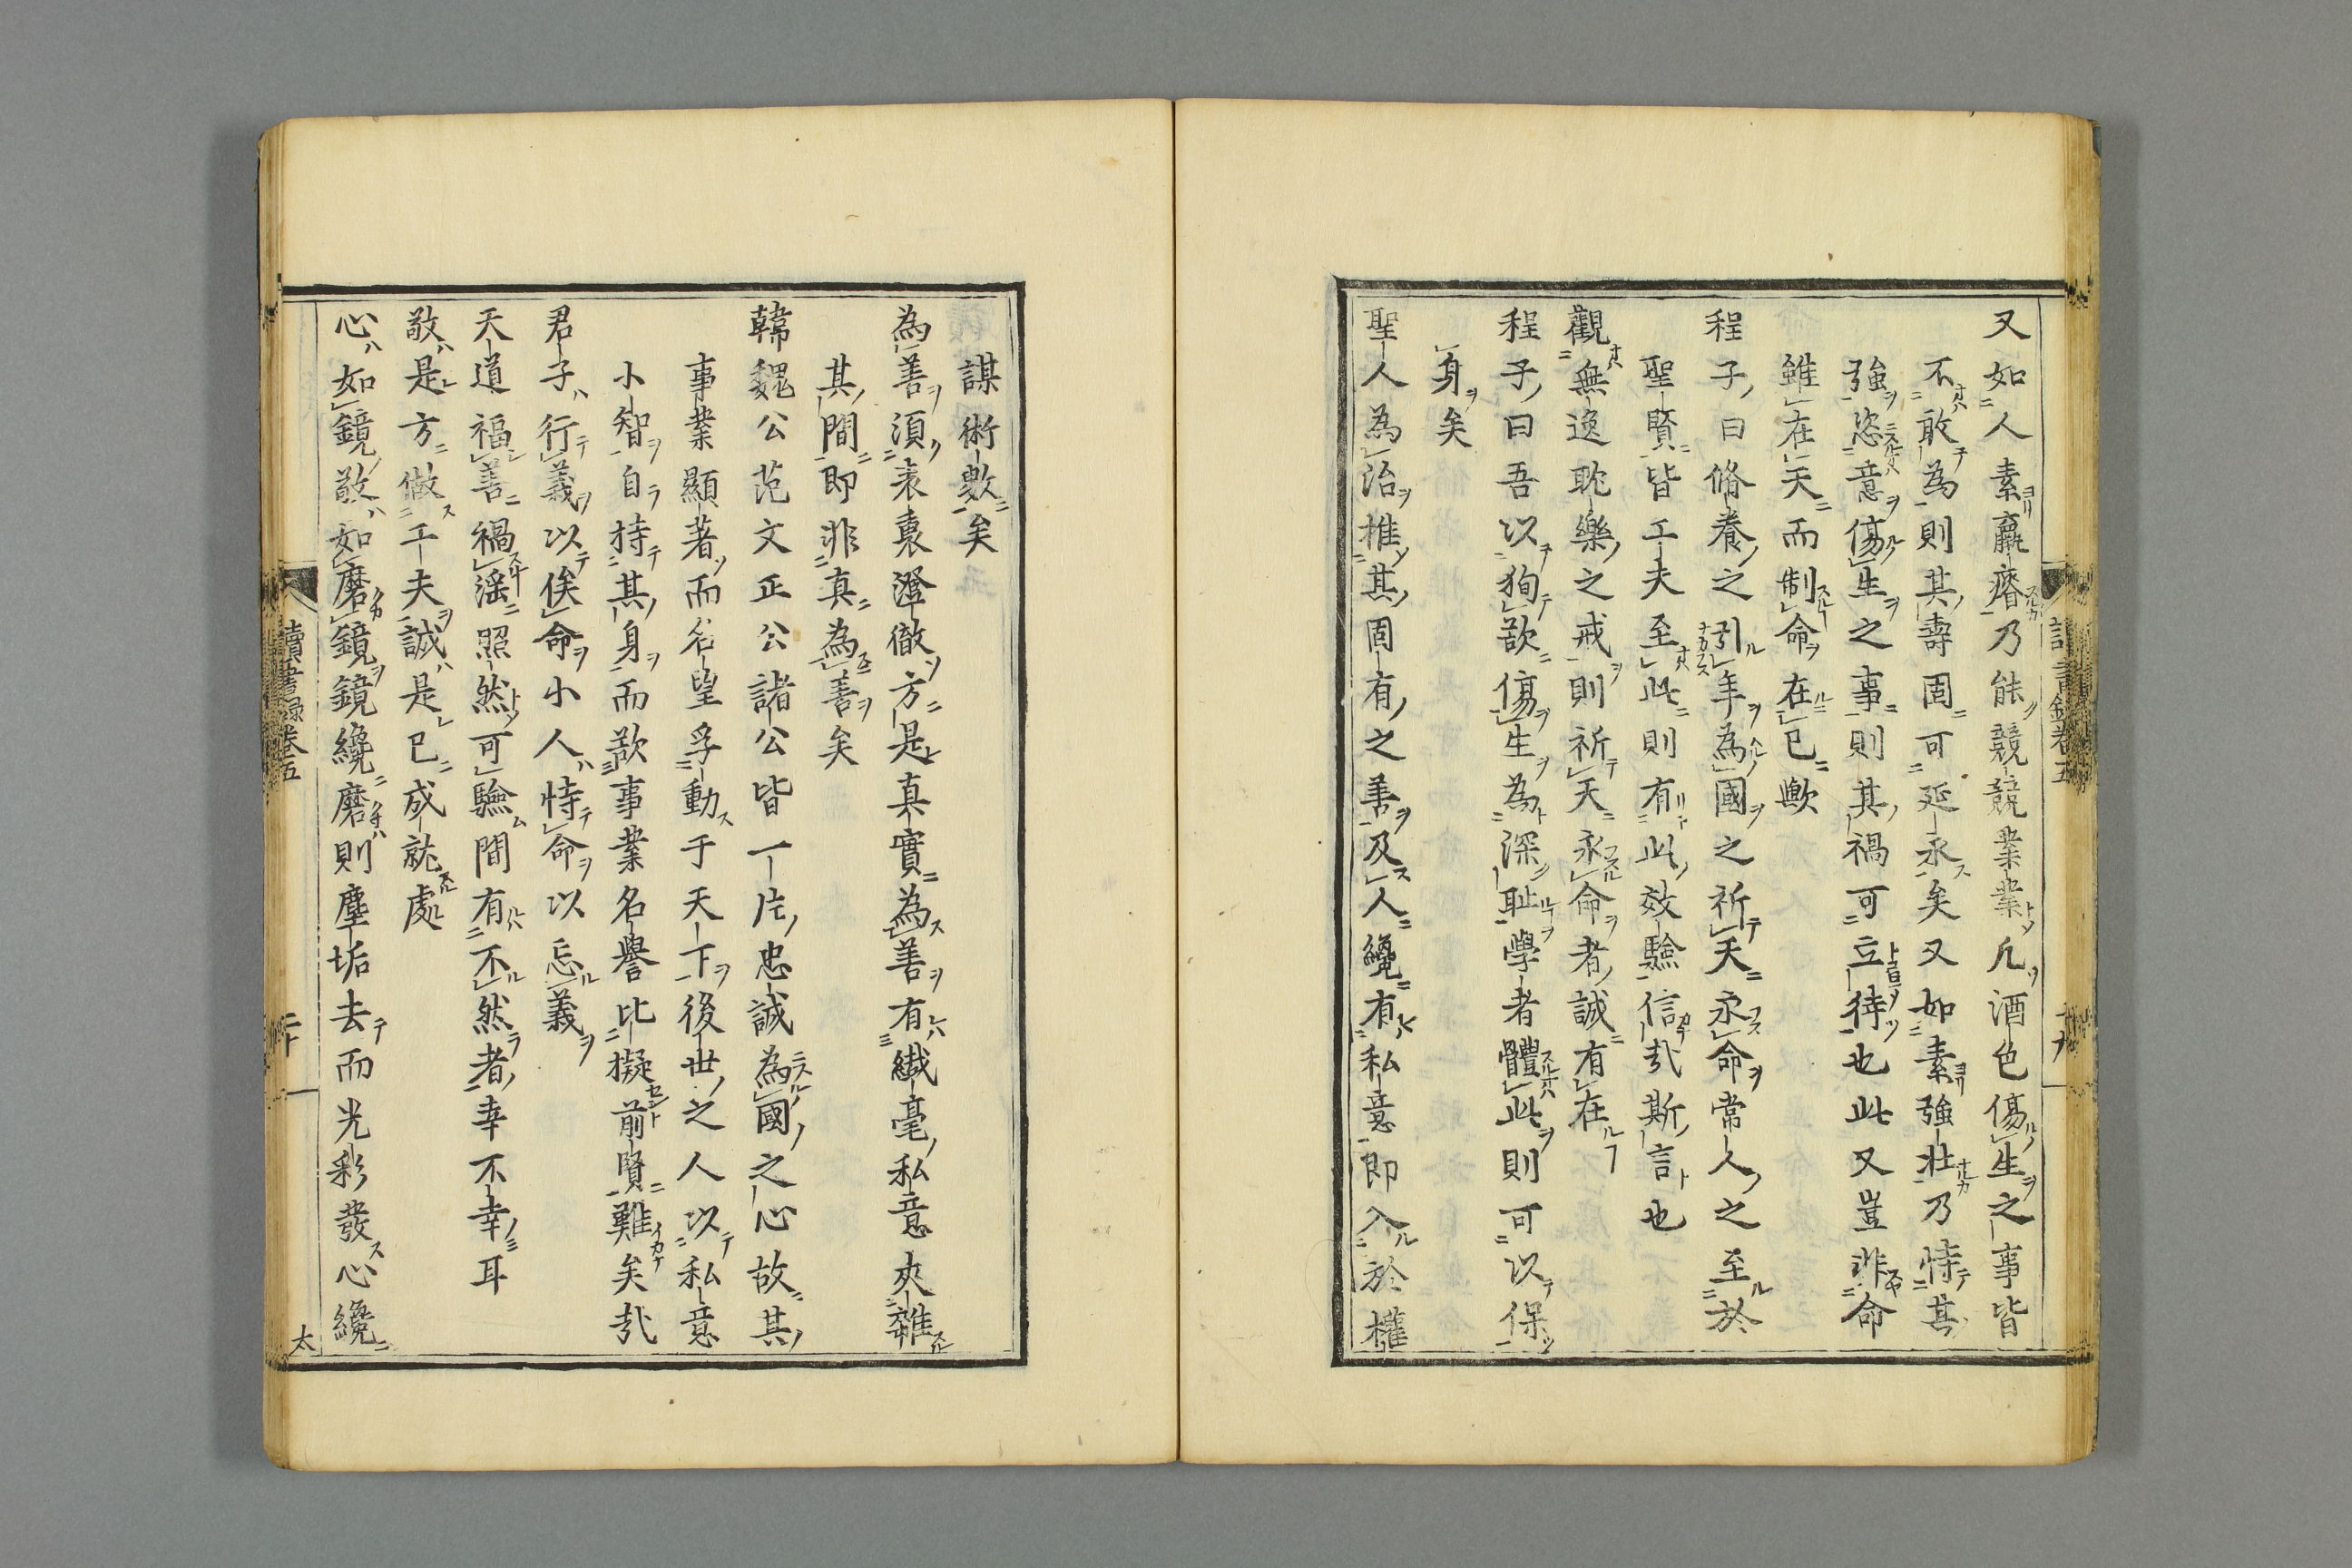 又如人素羸瘠乃能兢兢業業凡酒色傷生之事皆
不敢為則其壽固可延永矣又如素強壯乃恃其
強恣意傷生之事則其禍可立待也此又豈非命
雖在天而制命在已歟
程子曰脩養之引年為國之祈天永命常人之至於
聖賢皆工夫至此則有此效驗信哉斯言也
觀無逸耽樂之戒則祈天永命者誠有在
程子曰吾以狥欲傷生為深耻學者體此則可以保
身矣
聖人為治推其固有之善及人纔有私意即入於權
謀術數矣
為善須表裏澄徹方是真實為善有纎毫私意夾雜
其間即非真為善矣
韓魏公范文正公諸公皆一片忠誠為國之心故其
事業顯著而名望孚動于天下後世之人以私意
小智自持其身而欲事業名譽比擬前賢難矣哉
君子行義以俟命小人恃命以忘義
天道福善禍淫照然可驗間有不然者幸不幸耳
敬是方做工夫誠是已成就處
心如鏡敬如磨鏡鏡纔磨則塵垢去而光彩發心纔
讀書録卷五
二十
太